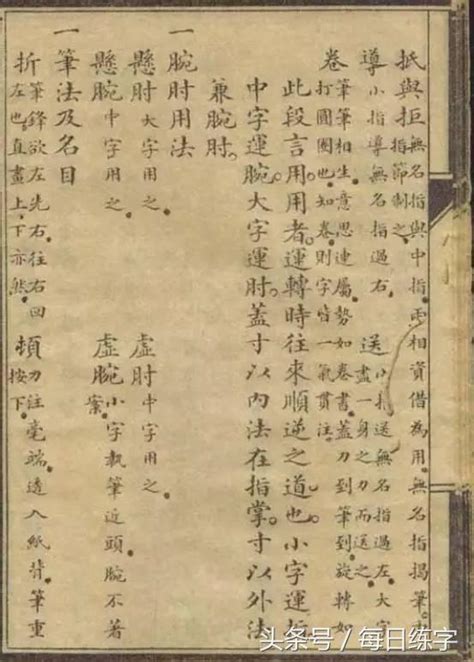 抵與拒無名指與中指兩相資借為用無名指揭筆中
指節制之
導小指導無名指過右 送小指送無名指過左大字
盡一身之力而送之
卷筆筆相生意思連屬勢如卷書蓋力到筆到旋轉如
打圈圈也知卷則字皆一氣貫注
此段言用用者運轉時往來順逆之道也小字運指
中字運腕大字運肘蓋寸以內法在指掌寸以外法
兼腕肘
一腕肘用法
懸肘大字用之 虛肘中字用之
懸腕中字用之 虛腕小字執筆近頭腕不著
案
一筆法及名目
折筆鋒欲左先右往右回 頓力注毫端透入紙背筆重
左也直畫上下亦然 按下
头条号 / 每日练字